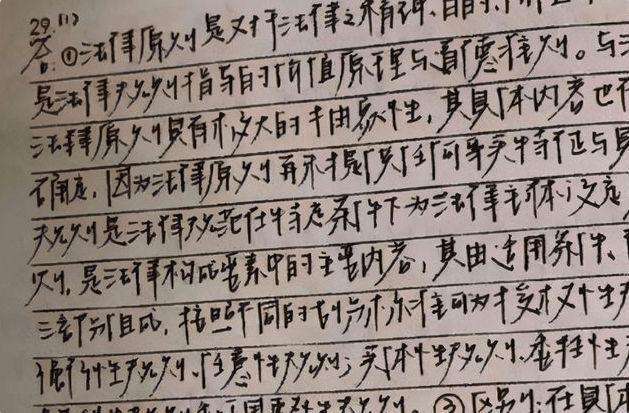 29.(1)
答:①法律原则是对于法律之有理、目的、
是法律规则指导的价值原理与道德准则。与法
法律原则具有极大的抽象性,其具体内容也不
不确定,因为法律原则再不提供任何事实特征与具
规则是法律规范在特定条件下为法律主体设定
则,是法律构成要素中的主要内容,其由适用条件、
三部分组成,按照不同的划分标准可为授权性
强行性规则、任意性规则;实体性规则、委任性
规则 ②区别:在具体